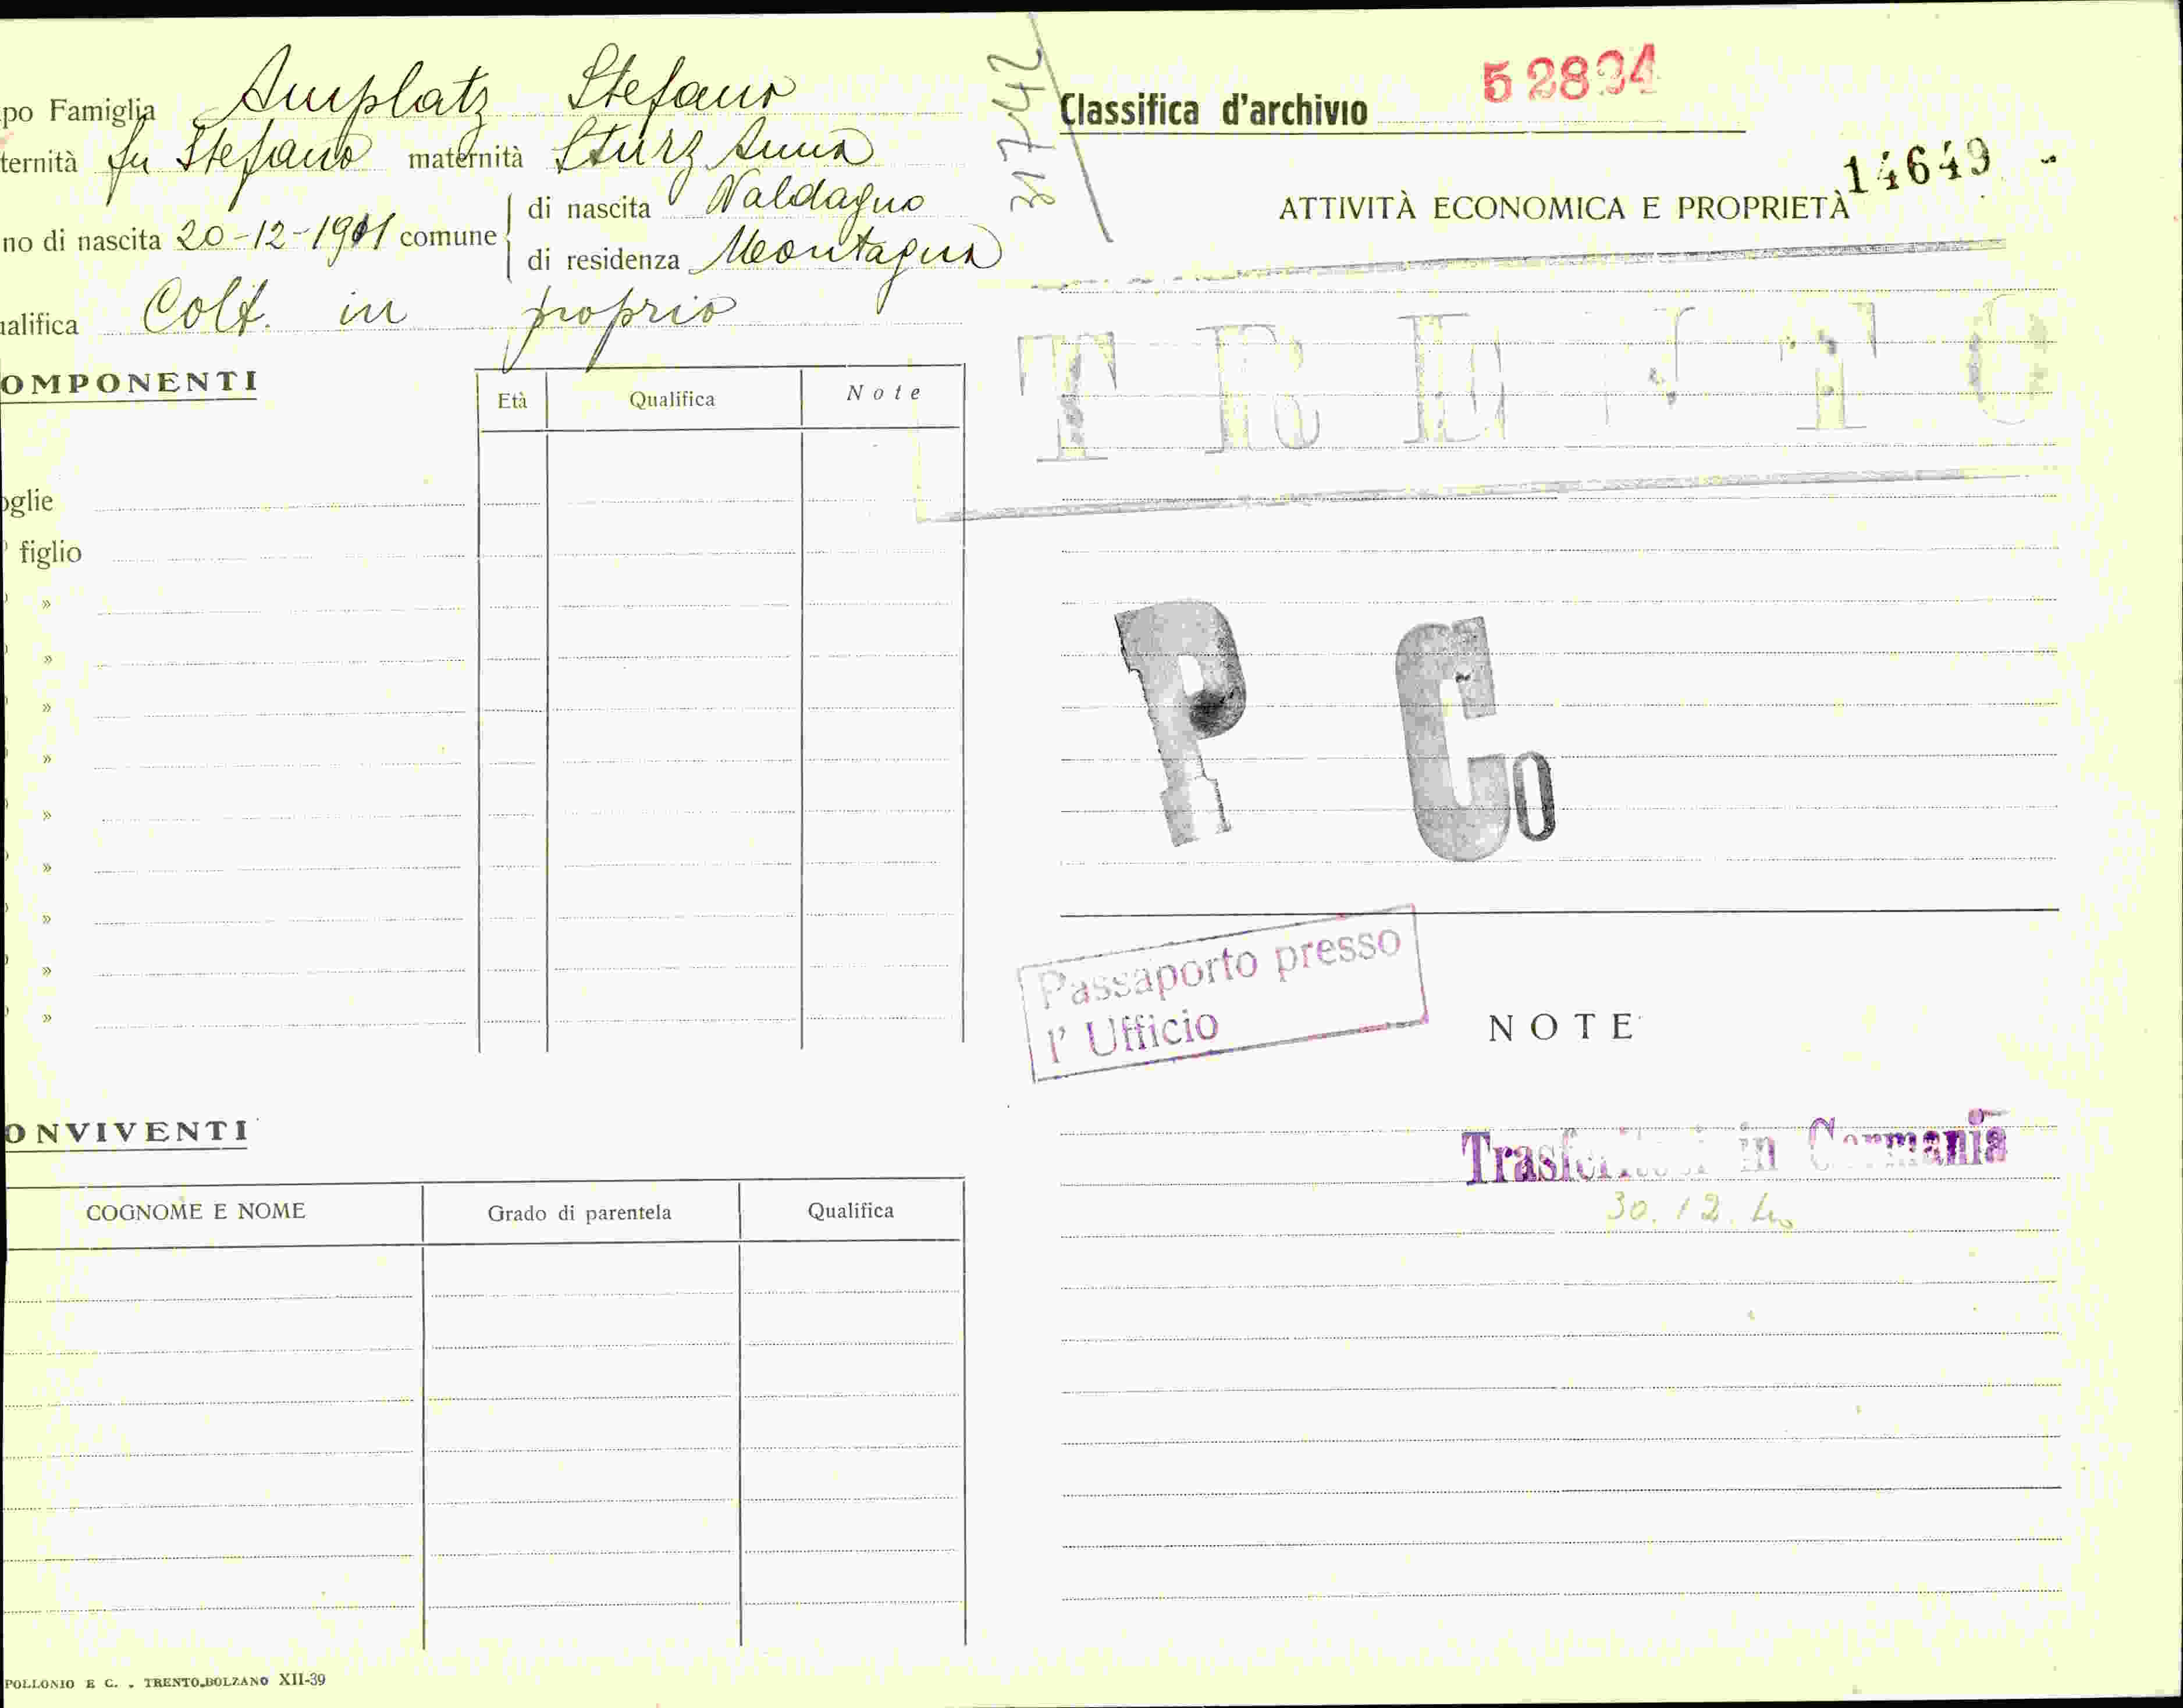 po Famiglia Amplatz Stefano
ternità fu Stefano maternità Sturz Anna
no di nascita 20-12-1901 comune
di nascita Valdagno
di residenza Montagna
ualifica Colt. in proprio
OMPONENTI
Età Qualifica Note
oglie
figlio
»
»
»
»
»
»
»
»
»
ONVIVENTI
COGNOME E NOME Grado di parentela Qualifica
POLLONIO E C. . TRENTO-BOLZANO XII-39
31742
Classifica d'archivio 52894
14649 -
ATTIVITÀ ECONOMICA E PROPRIETÀ
TRENTO
P Co
Passaporto presso
l' Ufficio
NOTE
Trasferitosi in Germania
30.12.